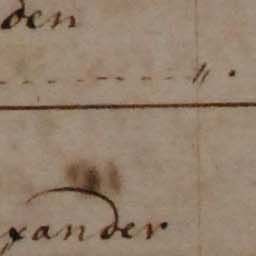 den
xander